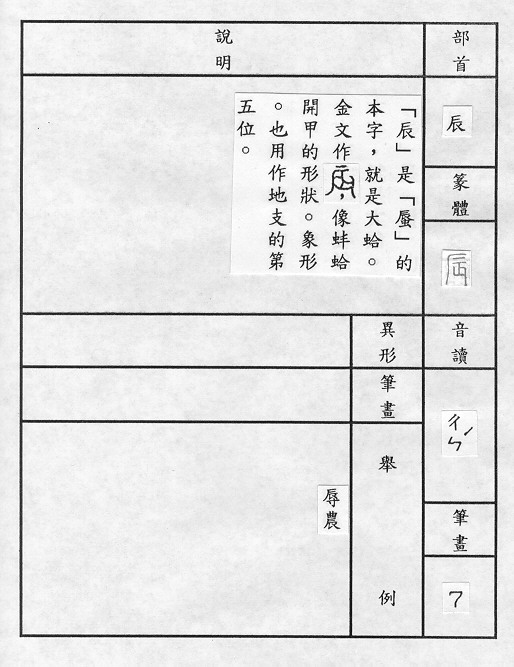 部首
辰
篆體
音讀
ㄔㄣˊ
筆畫
7
說明
「辰」是「蜃」的
本字，就是大蛤。
金文作，像蚌蛤
開甲的形狀。象形
。也用作地支的第
五位。
異形
筆畫
舉例
辱農